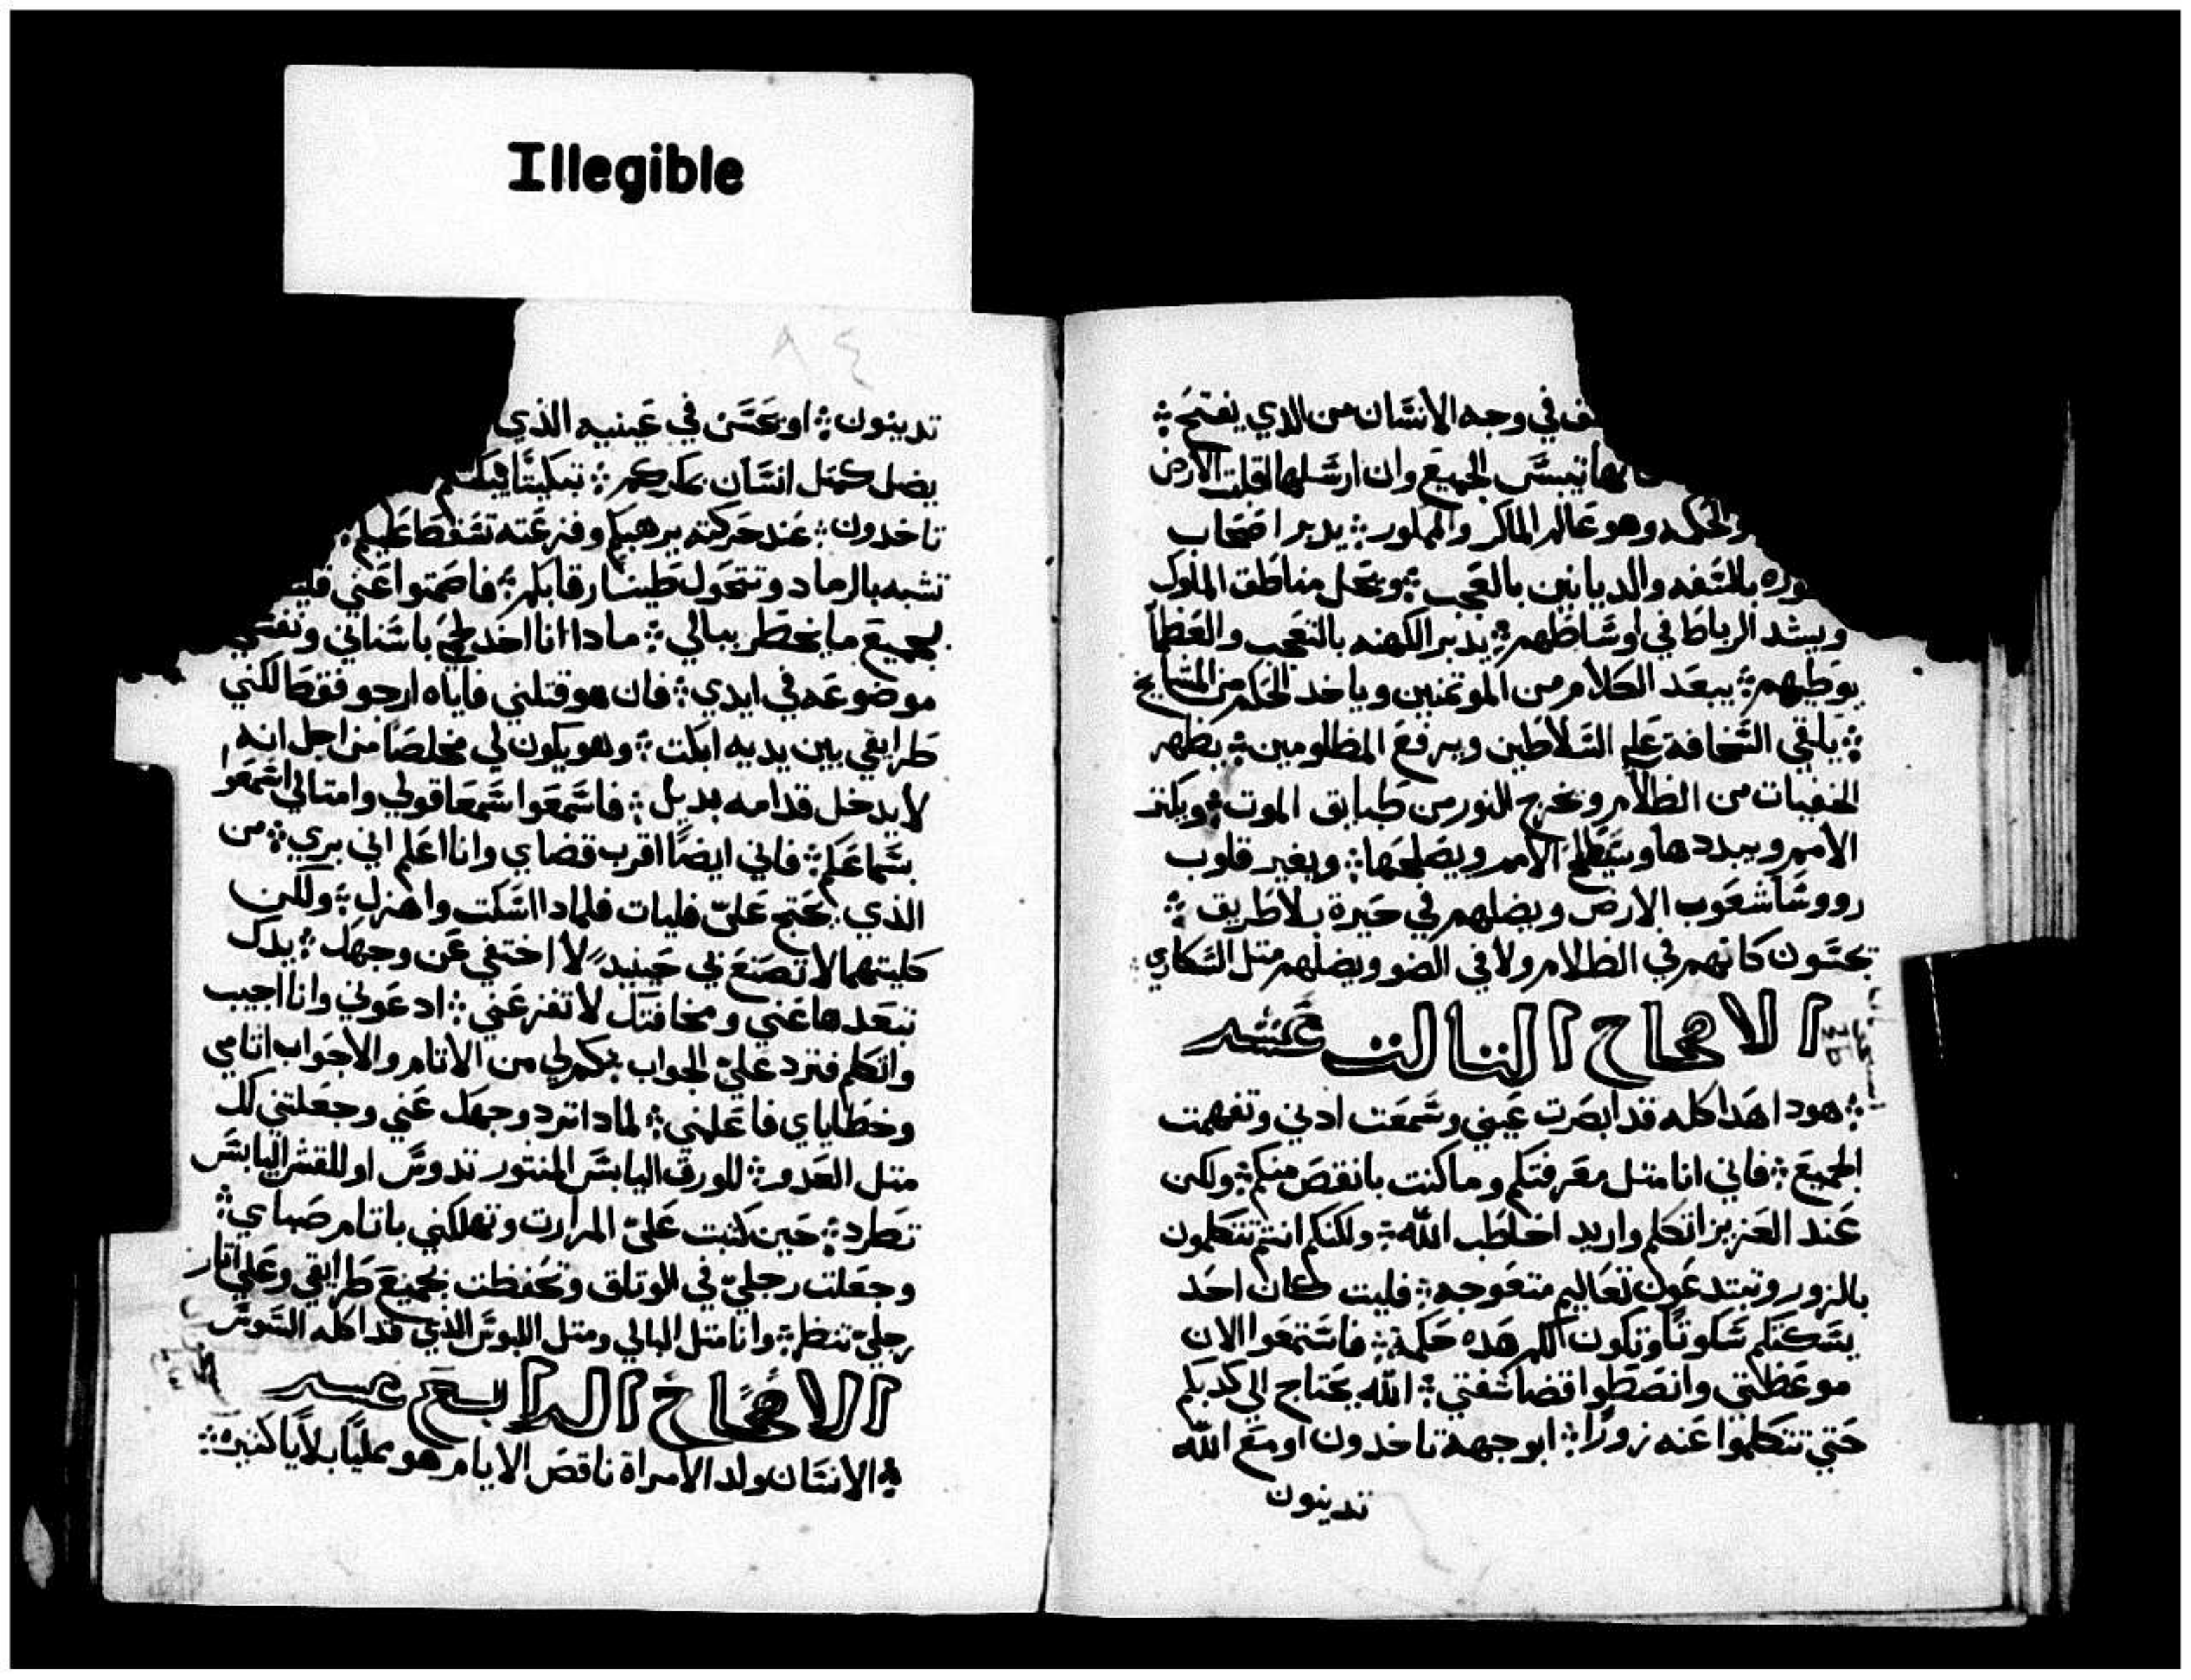 Illegible
في وجه الانسَان من الذي يفتح ܀
تيبسَ الجميعَ وان ارسَلها اقلبت الارض
والحكمه وهو عَالم الماكر والممكور ܀ يدبر اصحاب
بالسَفه والديانين بالعَجب ܀ ويحل مناطق الملوك
ويشد الرباط في اوسَاطهم ܀ يدبر الكهنه بالتعَجب والعَظما
يوطيهم ܀ يبعَد الكلام من الموتمنين وياخد الحكم من المشايخ
܀ يلقي السَخافة عَلي السَلاطين ويرفعَ المظلومين ܀ يظهر
الخفيات من الظلام ويخرج النور من طبابق الموت ܀ ويكثر
الامم ويبددها ويسَطح الامم ويصلحَها ܀ ويغير قلوب
رووسَا شعَوب الارض ويضلهم في حَيرة بلا طَريق ܀
يحسَون كانهم في الظلام ولا في الضو ويضلهم متل السَكاري
الاصحاح التالت عَشر
܀ هودا هَدا كله قد ابصَرت عَيني وسَمعَت ادني وتفهمت
الجميعَ ܀ فاني انا متل معَرفتكم وما كنت بانقصَ منكم ܀ ولكن
عَند العَزيز اتكلم واريد اخاطب اللّه ܀ ولكنكم انتم تتكلمون
بالزور وتبتدعَون تعَاليم متعَوجه ܀ فليت كان احَد
يسَكتكم سَكوتًا وتكون لكم هَده حَكمة ܀ فاسَتمعَوا الان
موعَظتي وانصَطوا قضا شفتي ܀ اللّه يحَتاج الي كدبكم
حَتي تتكلموا عَنه زورًا ܀ ابوجهه تاخدون او معَ اللّه
تدينون
٨٤
تدينون ܀ او يحَسَن في عَينيه الذي
يضل كمتل انسَان بمكركم ܀ تبكيتًا يبكتكم
تاخدون ܀ عَند حَركته يرهبكم وفزعَته تسَقط عَليكم
تشبه بالرماد وتتحَول طينًا رقابكم ܀ فاصَمتوا عَني
بجميعَ ما يخطر ببالي ܀ مادا انا اخَد لحَمي باسَناني ونفسَي
موضوعَه في ايدي ܀ فان هو قتلني فاياه ارجو فقط لكني
طَرايقي بين يديه ابكت ܀ وهو يكون لي مخلصَا من اجل انه
لا يدخل قدامه بديل ܀ فاسَمعَوا سَمعَا قولي وامتالي اسَمعَوا
بسَماعَكم ܀ فاني ايضًا اقرب قضاي وانا اعَلم اني بري ܀ من
الذي يحَتج عَليّ فليات فلمادا اسَكت واهزل ܀ ولكن
كليتهما لا تصَنعَ بي حَينيد لا اختفي عَن وجهَك ܀ يدك
تبعَدها عَني ومخافتك لا تفزعَني ܀ ادعَوني وانا اجيب
واتكلم فترد عَليّ الجواب ܀ كم لي من الاتام والاجَواب اتامي
وخطاياي فاعَلمني ܀ لمادا ترد وجهَك عَني وجعَلتني لك
متل العَدو ܀ للورق اليابسَ المنتور تدوسَ او للقش اليابسَ
تطرد ܀ حَين كتبت عَليّ المرارت وتهلكني باتام صَباي ܀
وجعَلت رجليّ في الوتاق وتحَفظت بجميعَ طَرايقي وعَلي اتار
رجليّ تنظر ܀ وانا متل البالي ومتل اللبوسَ الذي قد اكله السَوسَ
الاصحاح الرابع عشر
܀ الانسَان ولد الامراة ناقصَ الايام هو مملئًا بلايا كتيره ܀